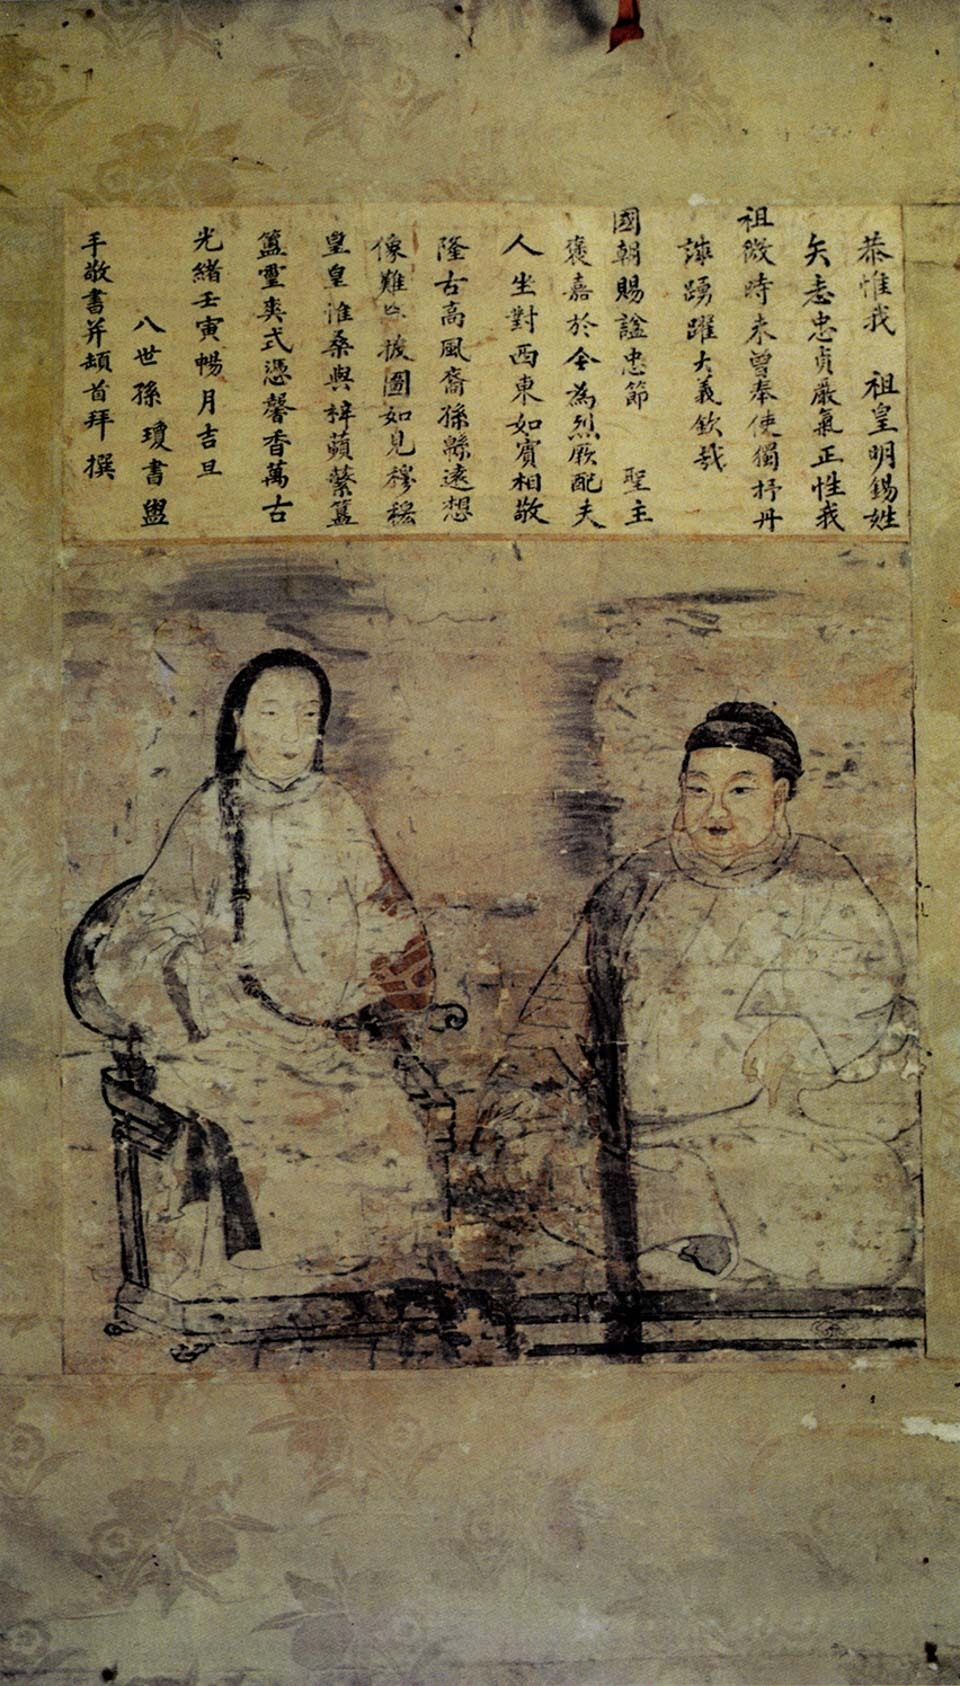 恭惟我　祖皇明錫姓
矢志忠貞嚴氣正性我
祖微時未曾奉使獨抒丹
誠踴躍大義欽哉
國朝賜謚忠節　聖主
褒嘉於今為烈厥配夫
人坐對西東如賓相敬
隆古高風裔孫緜遠想
像難 披圖如見穆穆
皇皇惟桑與梓蘋蘩簠
簋靈爽式憑馨香萬古
光緒壬寅暢月吉旦
八世孫　瓊書盥
手敬書并頓首拜　撰